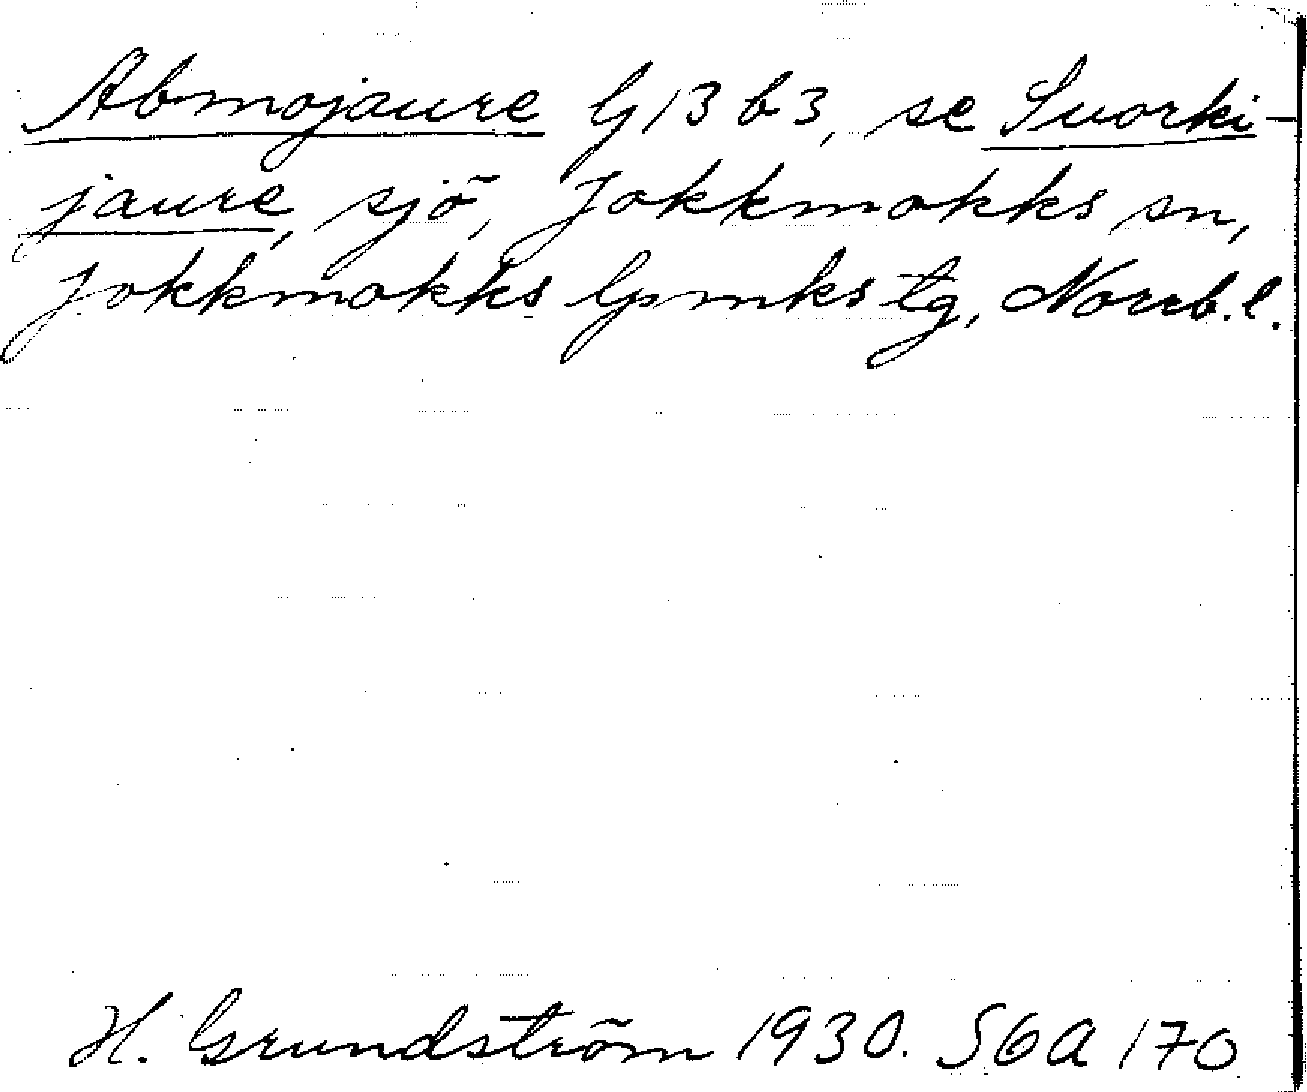 Abmojaure G 13 b 3, se Suorki-
jaure, sjö, Jokkmokks sn,
Jokkmokks lpmks tg, Norrb. l.
H. Grundström 1930. S6A 170